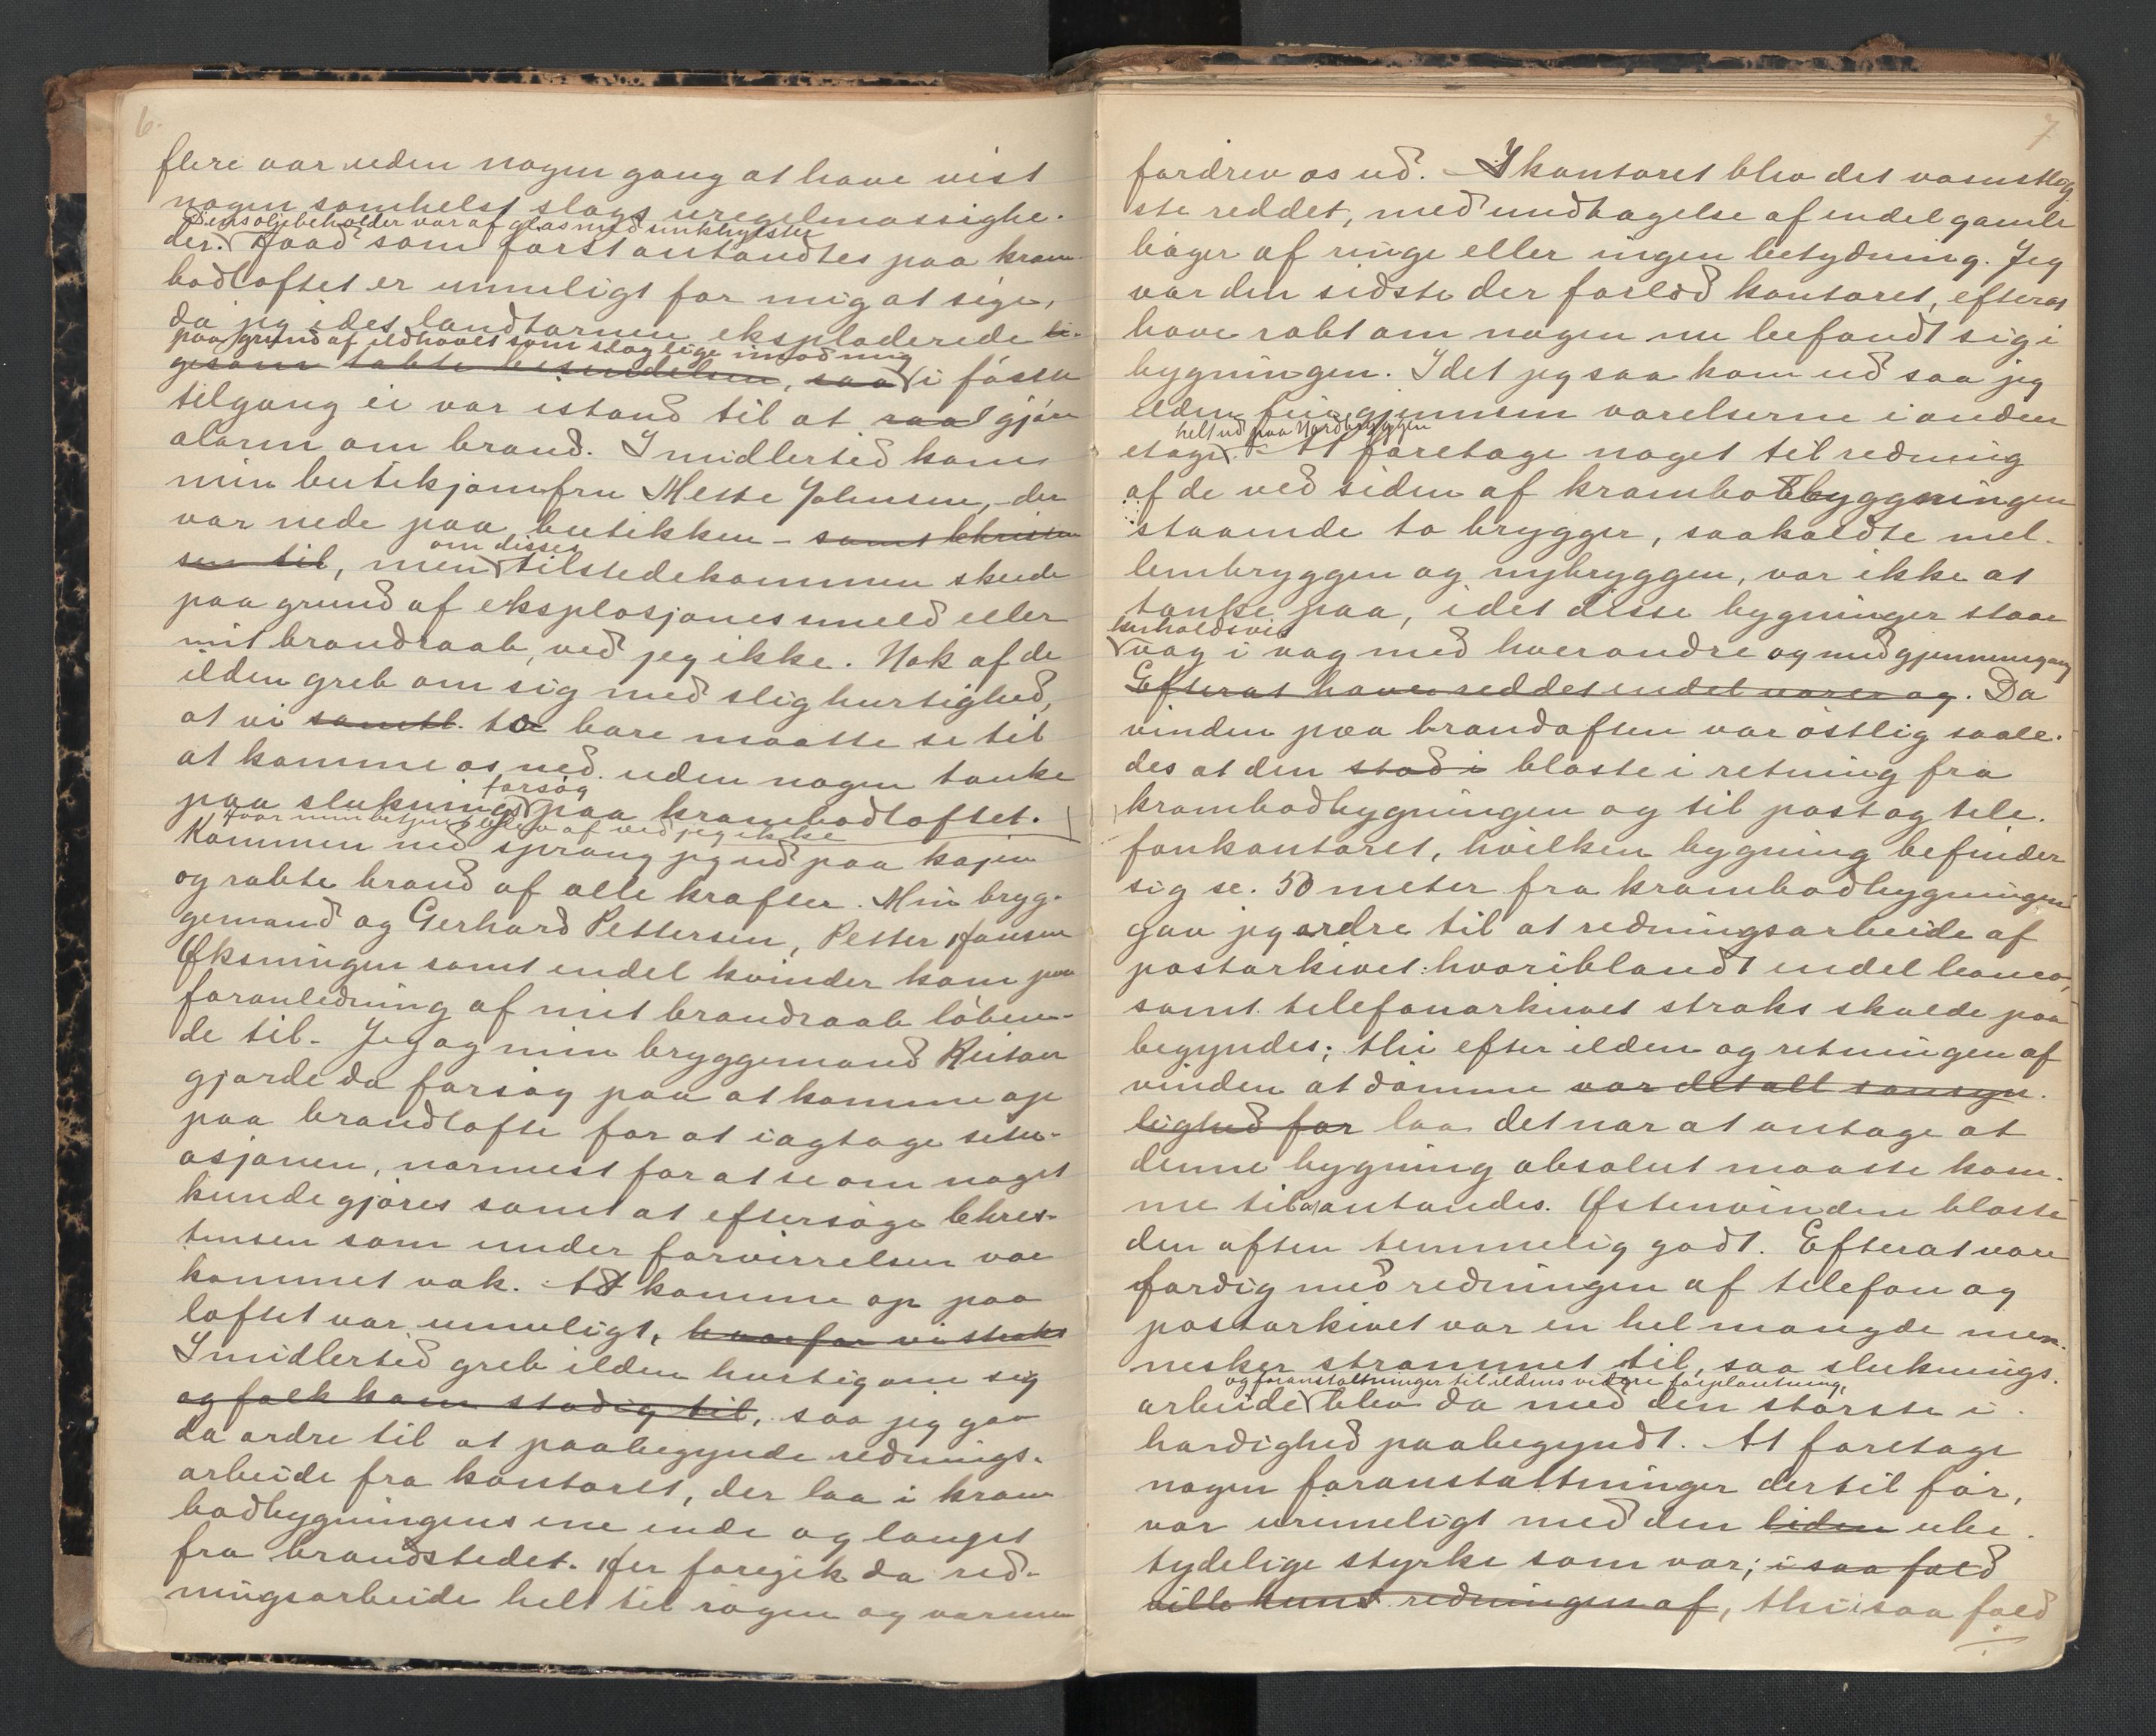 6.
flere aar uden nogen gang at have vist
nogen somhelst slags uregelmæssighe-
Dens oljebeholder var af glas med sinkhylster
der. Hvad som først antændtes paa kram-
bodloftet er umuligt for mig at sige,
da jeg idet landternen eksploderede li-
paa grund af ildhavet som slog lige imod mig
gesom tabte besindelsen, saa i første
tilgang ei var istand til at raa gjøre
alarm om brand. Imidlertid kom
min butikjomfru Mette Johnsen, - der
var nede paa butikken - samt Christen
om disses
sen til, men tilstedekommen skede
paa grund af eksplosjones smeld eller
mit brandraab, ved jeg ikke. Nok af de
ilden greb om sig med slig hurtighed,
at vi samtl. to bare maatte se til
at komme os ned uden nogen tanke
forsøg
paa slukning paa krambodloftet.
Hvor min betjent blev af ved jeg ikke
Kommen ned sprang jeg ud paa kajen
og robte brand af alle kræfter. Min bryg-
gemand og Gerhard Pettersen, Petter Hansen
Øksningen samt endel kvinder kom paa
foranledning af mit brandraab løben-
de til. Jeg og min bryggemand Kristian
gjorde da forsøg paa at komme op
paa brandlofte for at iagtage situ-
asjonen, nærmest for at se om noget
kunde gjøres samt at eftersøge Chris-
tensen som under forvirrelsen var
kommet væk. At komme op paa
loftet var umuligt, hvorfor vi straks
Imidlertid greb ilden hurtig om sig
og folk kom stadig til, saa jeg gav
da ordre til at paabegynde rednings-
arbeide fra kontoret, der laa i kram
bodbygningens ene ende og længst
fra brandstedet. Her foregik da red-
ningsarbeide helt til røgen og varmen
7
fordrev os ud. I kontoret blev det væsentlig
ste reddet, med undtagelse af endel gamle
bøger af ringe eller ingen betydning. Jeg
var den sidste der forlod kontoret, efterat
have robt om nogen nu befandt sig i
bygningen. Idet jeg saa kom ud saa jeg
ilden fuige gjennem værelserne i anden
helt ud paa Nordbryggen
etage. At foretage noget til redning
af de ved siden af krambodbyggningen
staaende to brygger, saakaldte mel-
lembryggen og nybryggen, var ikke at
tænke paa, idet disse bygninger staar
henholdsvis
væg i væg med hverandre og med gjennemgang
Efterat have reddet endel varer og. Da
vinden paa brandaften var østlig saale-
des at den stod i blæste i retning fra
krambodbygningen og til post og tele-
fonkontoret, hvilken bygning befinder
sig sc. 50 meter fra krambodbygningen
gav jeg ordre til at redningsarbeide af
postarkivet: hvoriblandt endel banco,
samt telefonarkivet straks skulde paa
begyndes; thi efter ilden og retningen af
vinden at dømme var det all sansyn-
lighed for laa det nær at antage at
denne bygning absolut maatte kom-
me til at antændes. Østenvinden blæste
den aften temmelig godt. Efterat være
færdig med redningen af telefon og
postarkivet var en hel mængde men-
nesker strømmet til, saa sluknings-
og foranstaltninger til ildens videre forplantning,
arbeide blev da med den største i-
hærdighed paabegyndt. At foretage
nogen foranstaltninger dertil før,
var urimeligt med den liden ube-
tydelige styrke som var; i saa fald
ville kunst redningen af, thi isaa fald